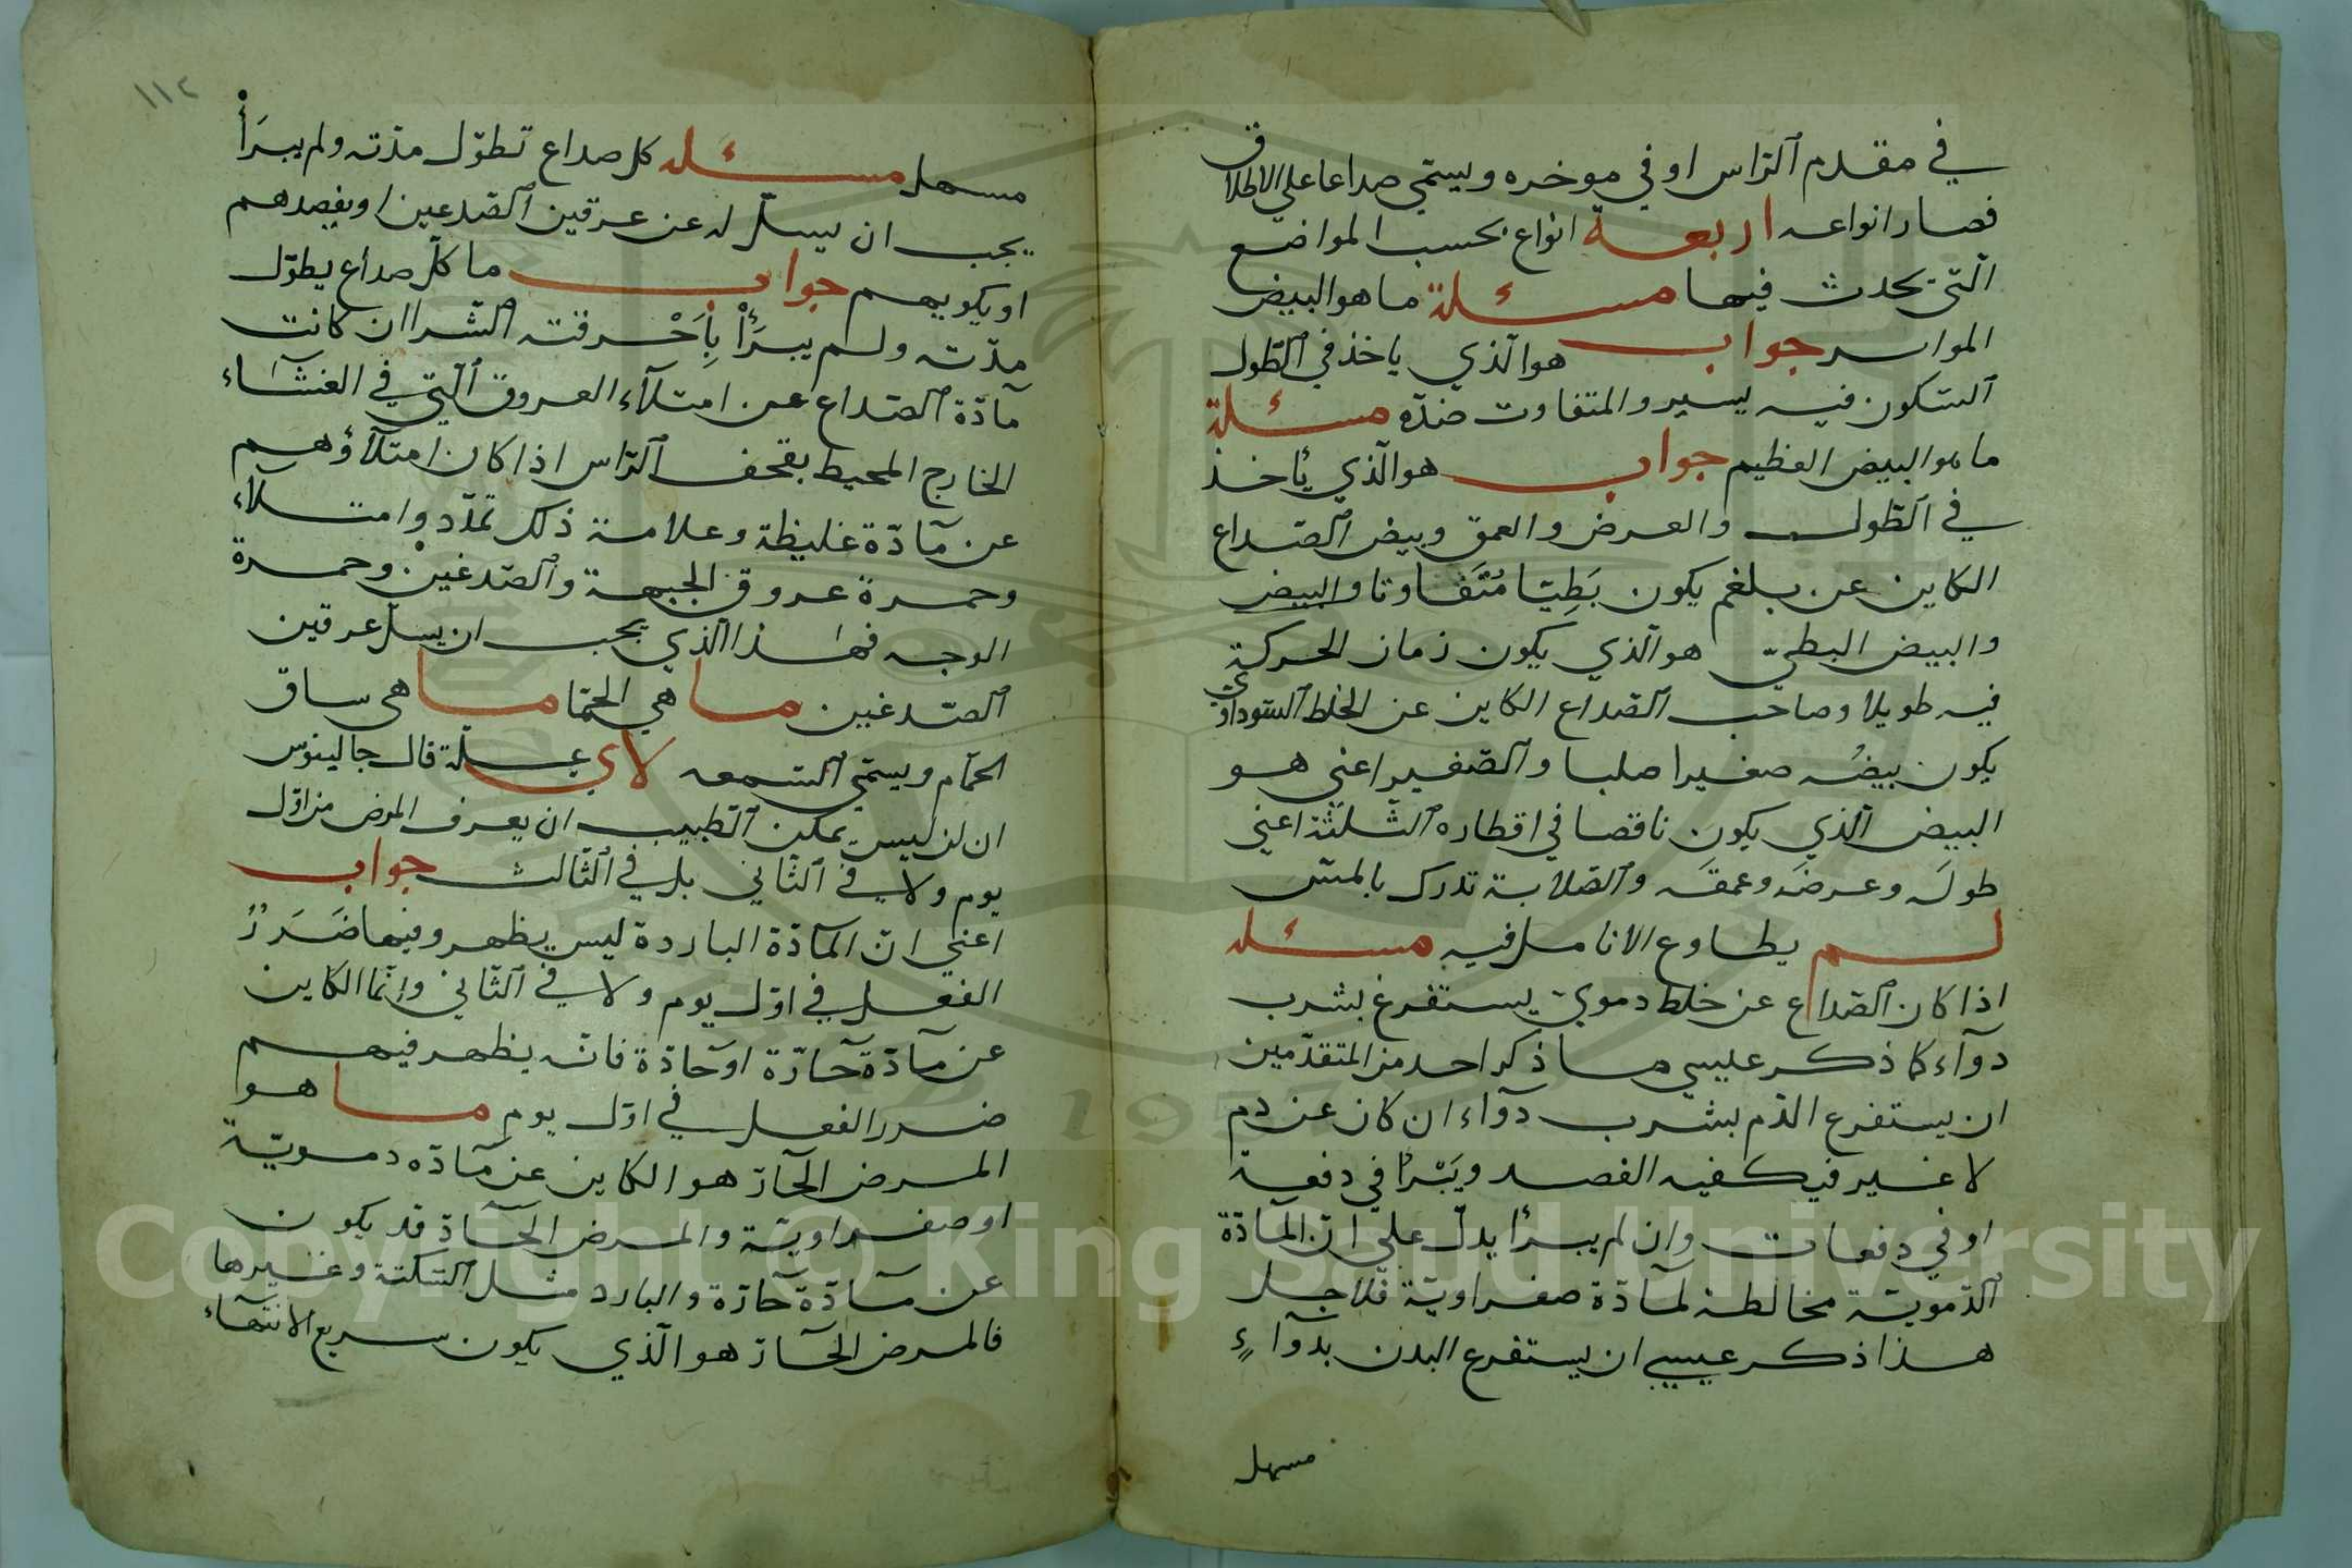 في مقدم الرّاس او في موخره ويسمّي صداعا علي الاطلاق
فصار انواعه اربعة انواع بحسب المواضع
الّتي يحدث فيها مسئلة ما هو البيض
جواب هو الّذي ياخذ في الطّول
السّكون فيه يسير والمتفاوت ضدّه مسئلة
ما هو البيض العظيم جواب هو الّذي يأخذ
في الطّول والعرض والعمق وبيض الصّداع
الكاين عن بلغم يكون بَطِيّا مُتَفاوتا والبيض
والبيض البطيّ هو الّذي يكون زمان الحركة
فيه طويلا وصاحب الصّداع الكاين عن الخلط السّوداوي
يكون بيضُه صغيرا صلبا والصّغير اعني هو
البيض الّذي يكون ناقصا في اقطاره الثّلثة اعني
طولَه وعرضَه وعمقَه والصّلابة تدرك بالمسّ
لم يطاوع الانامل فيه مسئله
اذا كان الصّداع عن خلط دمويّ يستفرغ بشرب
دوآء كما ذكر عليسي ما ذكر احد من المتقدّمين
ان يستفرع الدّم بشرب دوآء ان كان عن دم
لا غير فيكفيه الفصد ويَبْرأ في دفعة
او في دفعات وان لم يبرأ يدلّ علي انّ المآدّة
الدّمويّة مخالطة لمآدّة صفراويّة فلاجل
هذا ذكر عيسي ان يستفرع البدن بدوآءٍ
مسهل
١١٢
مسهل مسئله كل صداع تطوّل مدّته ولم يبرَأْ
يجب ان يسلّ له عن عرقين الصّدعين او يفصدهم
او يكويهم جواب ما كلّ صداع يطوّل
مدّته ولم يبرَأْ الشرا ان كانت
مآدّة الصّداع عن امتلآء العروق الّتي في الغشآء
الخارج المحيط بقحف الرّاس اذا كان امتلآؤهم
عن مآدّة غليظة وعلامة ذلك تمدّد وامتلاء
وحمرة عروق الجبهة والصّدغين وحمرة
الوجه فهذا الّذي يجب ان يسلّ عرقين
الصّدغين ما هي الحمّا ما هي ساق
الحمّام ويسمّي السّمعه لاي علّة قال جالينوس
ان لن ليس يمكن الطّبيب ان يعرف المرض من اوّل
يوم ولا في الثّاني بل في الثّالث جواب
اعني انّ المآدّة الباردة ليس يظهر وفيها ضَرَرُ
الفعل في اوّل يوم ولا في الثّاني وانّما الكاين
عن مآدّة حآرّة او حآدّة فانّه يظهر فيهم
ضرر الفعل في اوّل يوم ما هو
المرض الحآرّ هو الكاين عن مآدّه دمويّة
او صفراويّة والمرض الحآدّ قد يكون
عن مآدّة حآرّة والبارد مثل السّكتة وغيرها
فالمرض الحآدّ هو الّذي يكون سريع الانتهآء
Copyright © King Saud University